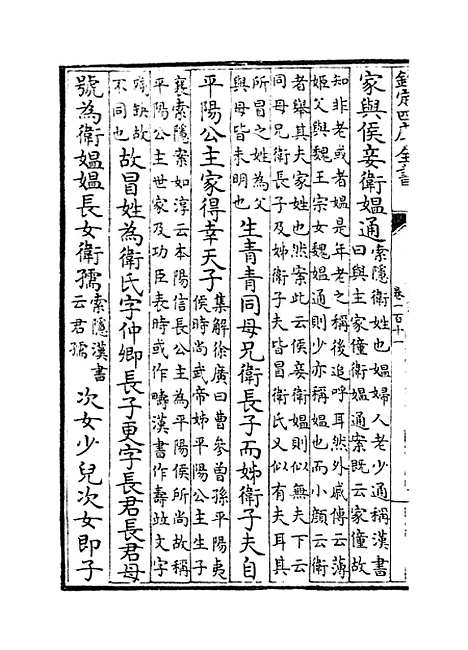 欽定四庫全書
卷一百十一
家與侯妾衛媼通
索隱衛姓也媼婦人老少通稱漢書
曰與主家僮衛媼通案既云家僮故
知非老或者媼是年老之稱後追呼耳然外戚傳云薄
姬父與魏王宗女魏媼通則少亦稱媼也而小顏云衛
者舉其夫家姓也然案此云侯妾衛媼則似無夫下云
同母兄衛長子及姊衛子夫皆冒衛氏又似有夫耳其
所冒之姓為父
與母皆未明也
生青青同母兄衛長子而姊衛子夫自
平陽公主家得幸天子
集解徐廣曰曹參曾孫平陽夷
侯時尚武帝姊平陽公主生子
襄索隱案如淳云本陽信長公主為平陽侯所尚故稱
平陽公主世家及功臣表時或作疇漢書作壽竝文字
殘缺故
不同也
故冒姓為衛氏字仲卿長子更字長君長君母
號為衛媼媼長女衛孺
索隱漢書
云君孺
次女少兒次女即子